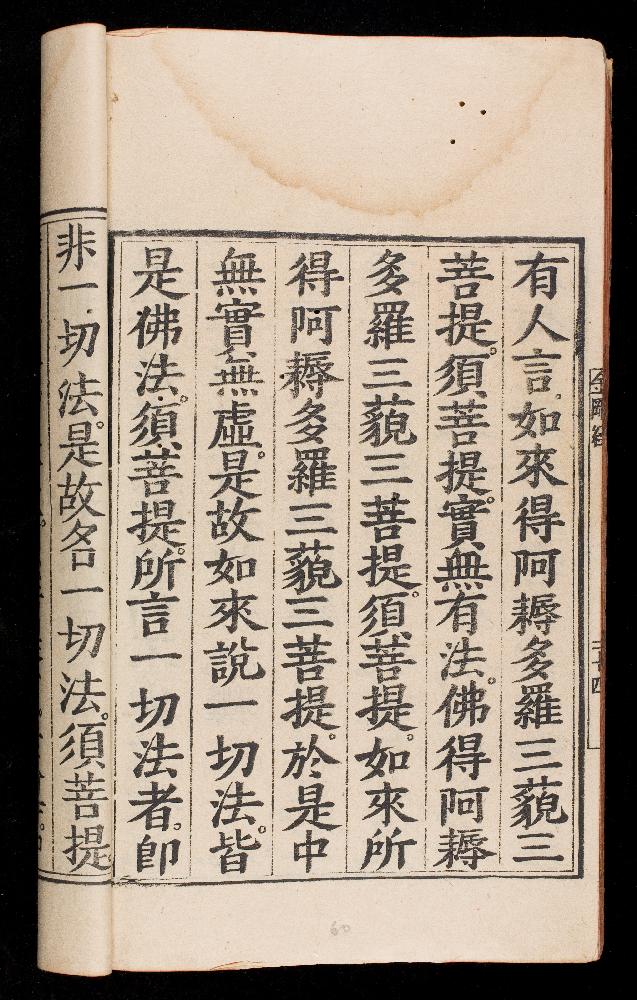 有人言如來得阿耨多羅三藐三
菩提。須菩提。實無有法。佛得阿耨
多羅三藐三菩提。須菩提。如來所
得阿耨多羅三藐三菩提。於是中
無實無虛。是故如來說一切法皆
是佛法。須菩提。所言一切法者。即
非一切法。是故名一切法。須菩提
金剛經
二十四
60